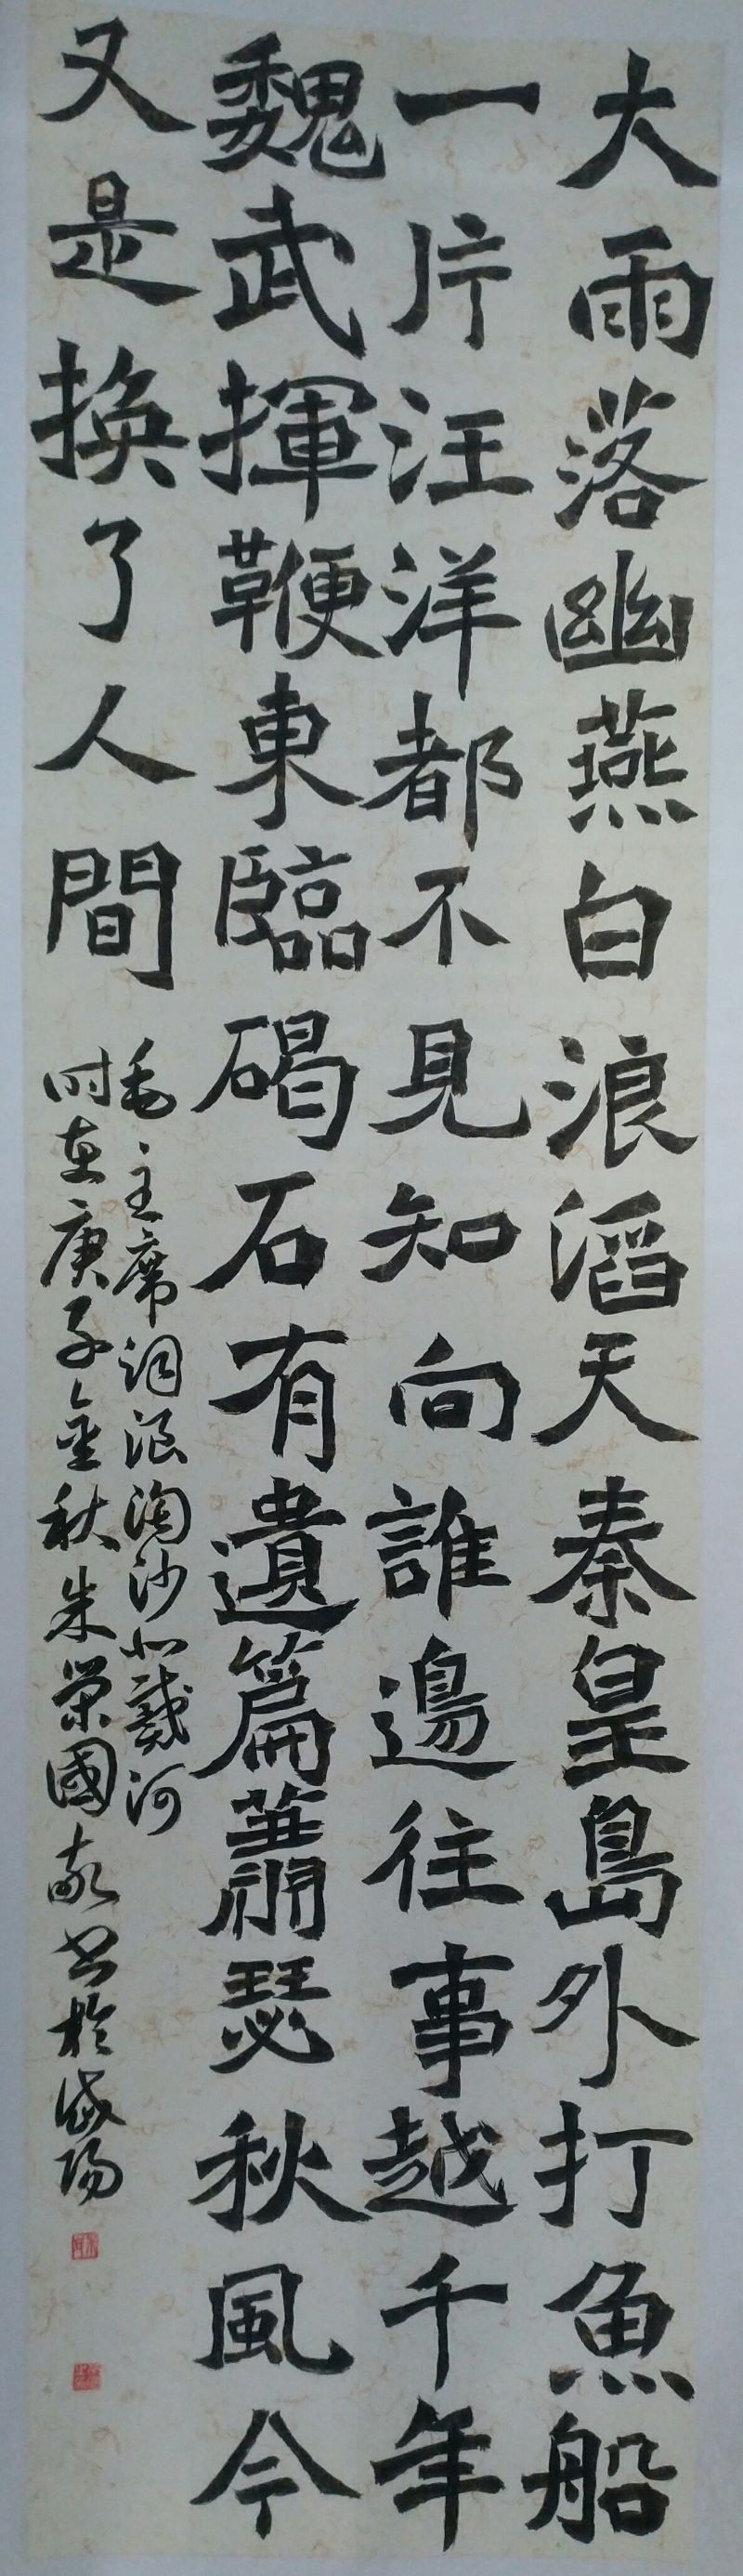 大雨落幽燕白浪滔天秦皇島外打魚船
一片汪洋都不見知向誰邊往事越千年
魏武揮鞭東臨碣石有遺篇蕭瑟秋風今
又是換了人間
毛主席詞浪淘沙北戴河
时在庚子金秋朱榮國敬书於咸陽